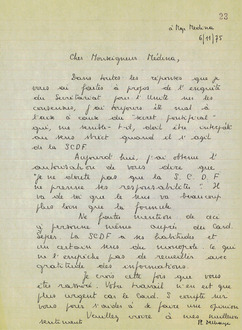 23
à Mgr Medina
6/11/75
Cher Monseigneur Médina,
Dans toutes les réponses que je
vous ai faites à propos de l'enquête
du Secrétariat pour l'Unité sur les
consensus, j'ai toujours été mal à
l'aise à cause du "secret pontifical"
qui, me semble-t-il, doit être interprété
au sens strict quand il s'agit
de la SCDF.
Aujourd'hui, j'ai obtenu l'
autorisation de vous dire que
"je ne doute pas que la S.C.D.F.
ne prenne ses responsabilités". Il
va de soi que le sens va beaucoup
plus loin que la formule.
Ne faites mention de ceci
à personne même auprès du Card.
Seper. La SCDF a ses habitudes et
un certain sens du monopole ce qui
ne l'empêche pas de recueillir avec
gratitude des informations.
Je crois cette fois que vous
êtes rassuré. Votre travail n'en est que
plus urgent car le Card. S compte sur
vous pour l'aider à faire une opinion
Veuillez croire à mes meilleurs
sentiments